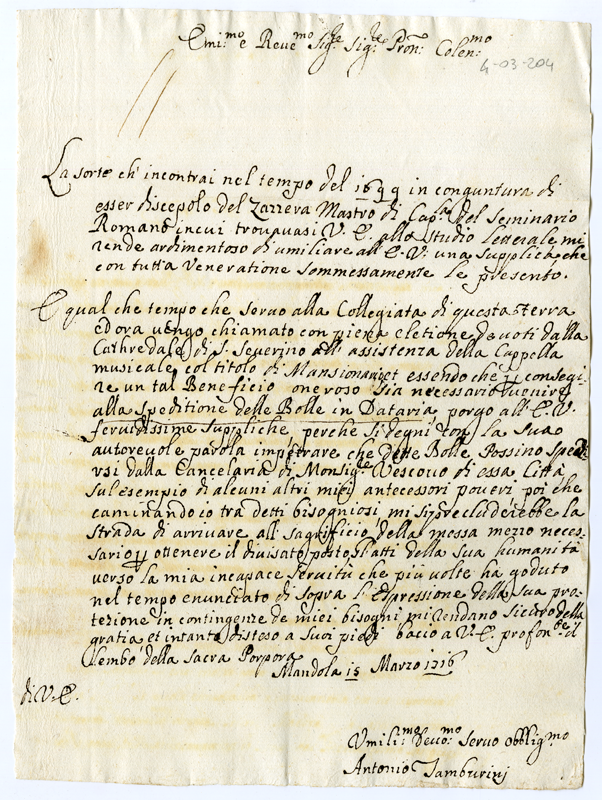 Emi:mo e Reve:mo Sig:re Sig:re Pron: Colen:mo
4-03-204
La sorte ch'incontrai nel tempo del 1699 in conguntura di
esser discepolo del Zazzera Mastro di Cap:la del Seminario
Romano in cui trovavasi V. E. allo studio letterale mi
rende ardimentoso di umiliare all'E. V. una Supplica che
con tutta Veneratione sommessamente le presento.
E qual che tempo che servo alla Collegiata di questa Terra
ed ora vengo chiamato con piena eletione de voti dalla
Cathredale di S. Severino all'assistenza della Cappella
musicale col titolo di Mansionario et essendo che p consegi-
re un tal Beneficio oneroso sia necessario venire
alla Speditione delle Bolle in Dataria, porgo all'E. V.
fervidissime suppliche perche si degni con la sua
autorevol e parola impetrare che dette Bolle possino sped-
irsi dalla Cancelaria di Monsig:r Vescovo di essa Città
sul'esempio di alcuni altri miei antecessori poveri poi che
caminando io tra detti bisogniosi mi si precluderebbe la
strada di arrivare all'sagrificio della messa mezzo neces-
sario p ottenere il divisato posto. Gl'atti della sua humanità
verso la mia incapace servitù che più volte ha goduto
nel tempo enunciato di sopra l'Espressione della sua pro-
tezione in contingenze de miei bisogni mi rendano sicuro della
gratia et intanto disteso a suoi piedi bacio a V. E. profon:te il
lembo della sacra Porpora
Mandola 15 Marzo 1716
di V. E.
Umili:mo Devo:mo Servo obblig:mo
Antonio Tamburinj